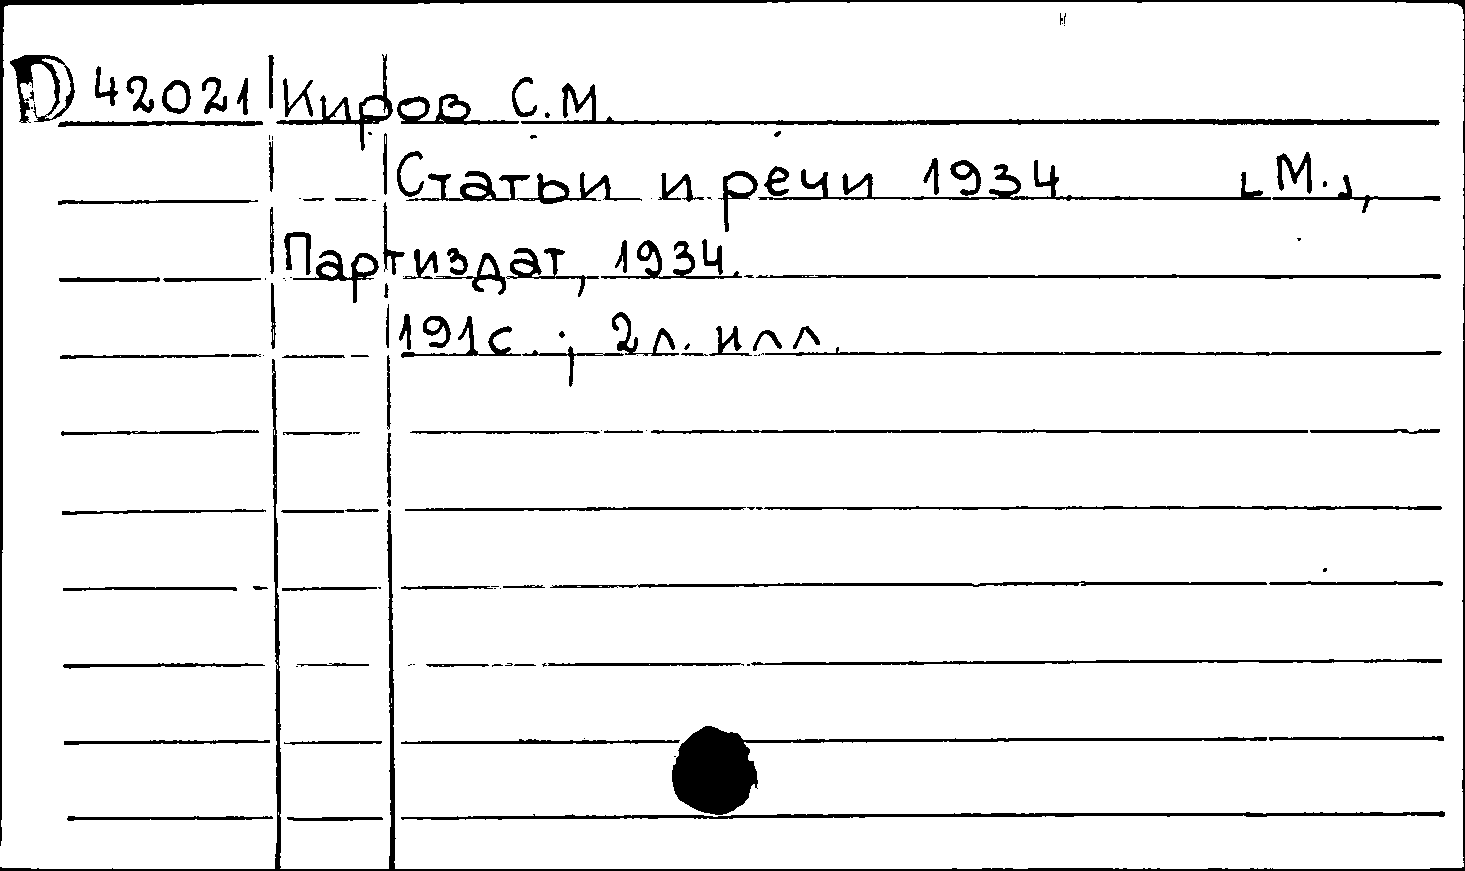 D 42021 Киров С.М.
Статьи и речи 1934. [М.],
Партиздат, 1934.
191с.; 2л. илл.